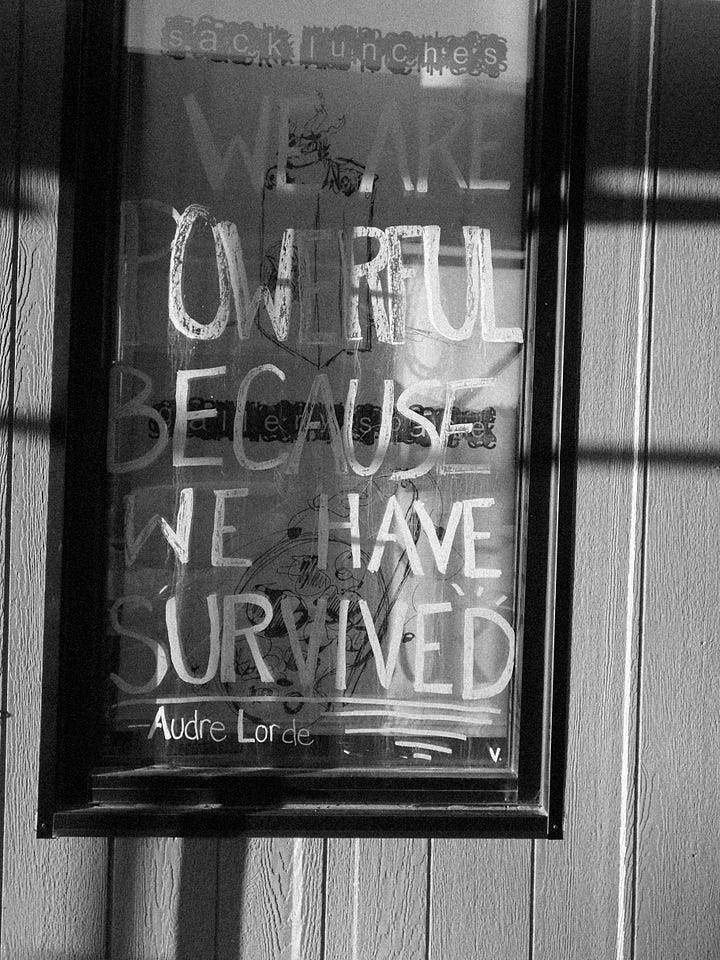 sack lunches
WE ARE
POWERFUL
BECAUSE
gallery space
WE HAVE
SURVIVED
Audre Lorde
V.